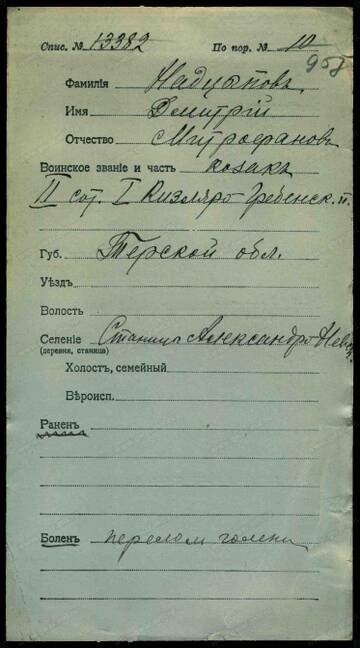 Спис. № 13382 По пор. № 10
958
Фамилія Надуповъ
Имя Дмитрій
Отчество Митрофановъ
Воинское званіе и часть козакъ
II сот. I Кизляро Гребенск. п.
Губ. Терской обл.
Уѣздъ
Волость
Селеніе Станица Александро Невск.
(деревня, станица)
Холостъ, семейный
Вѣроисп.
Раненъ
Боленъ перелом голени